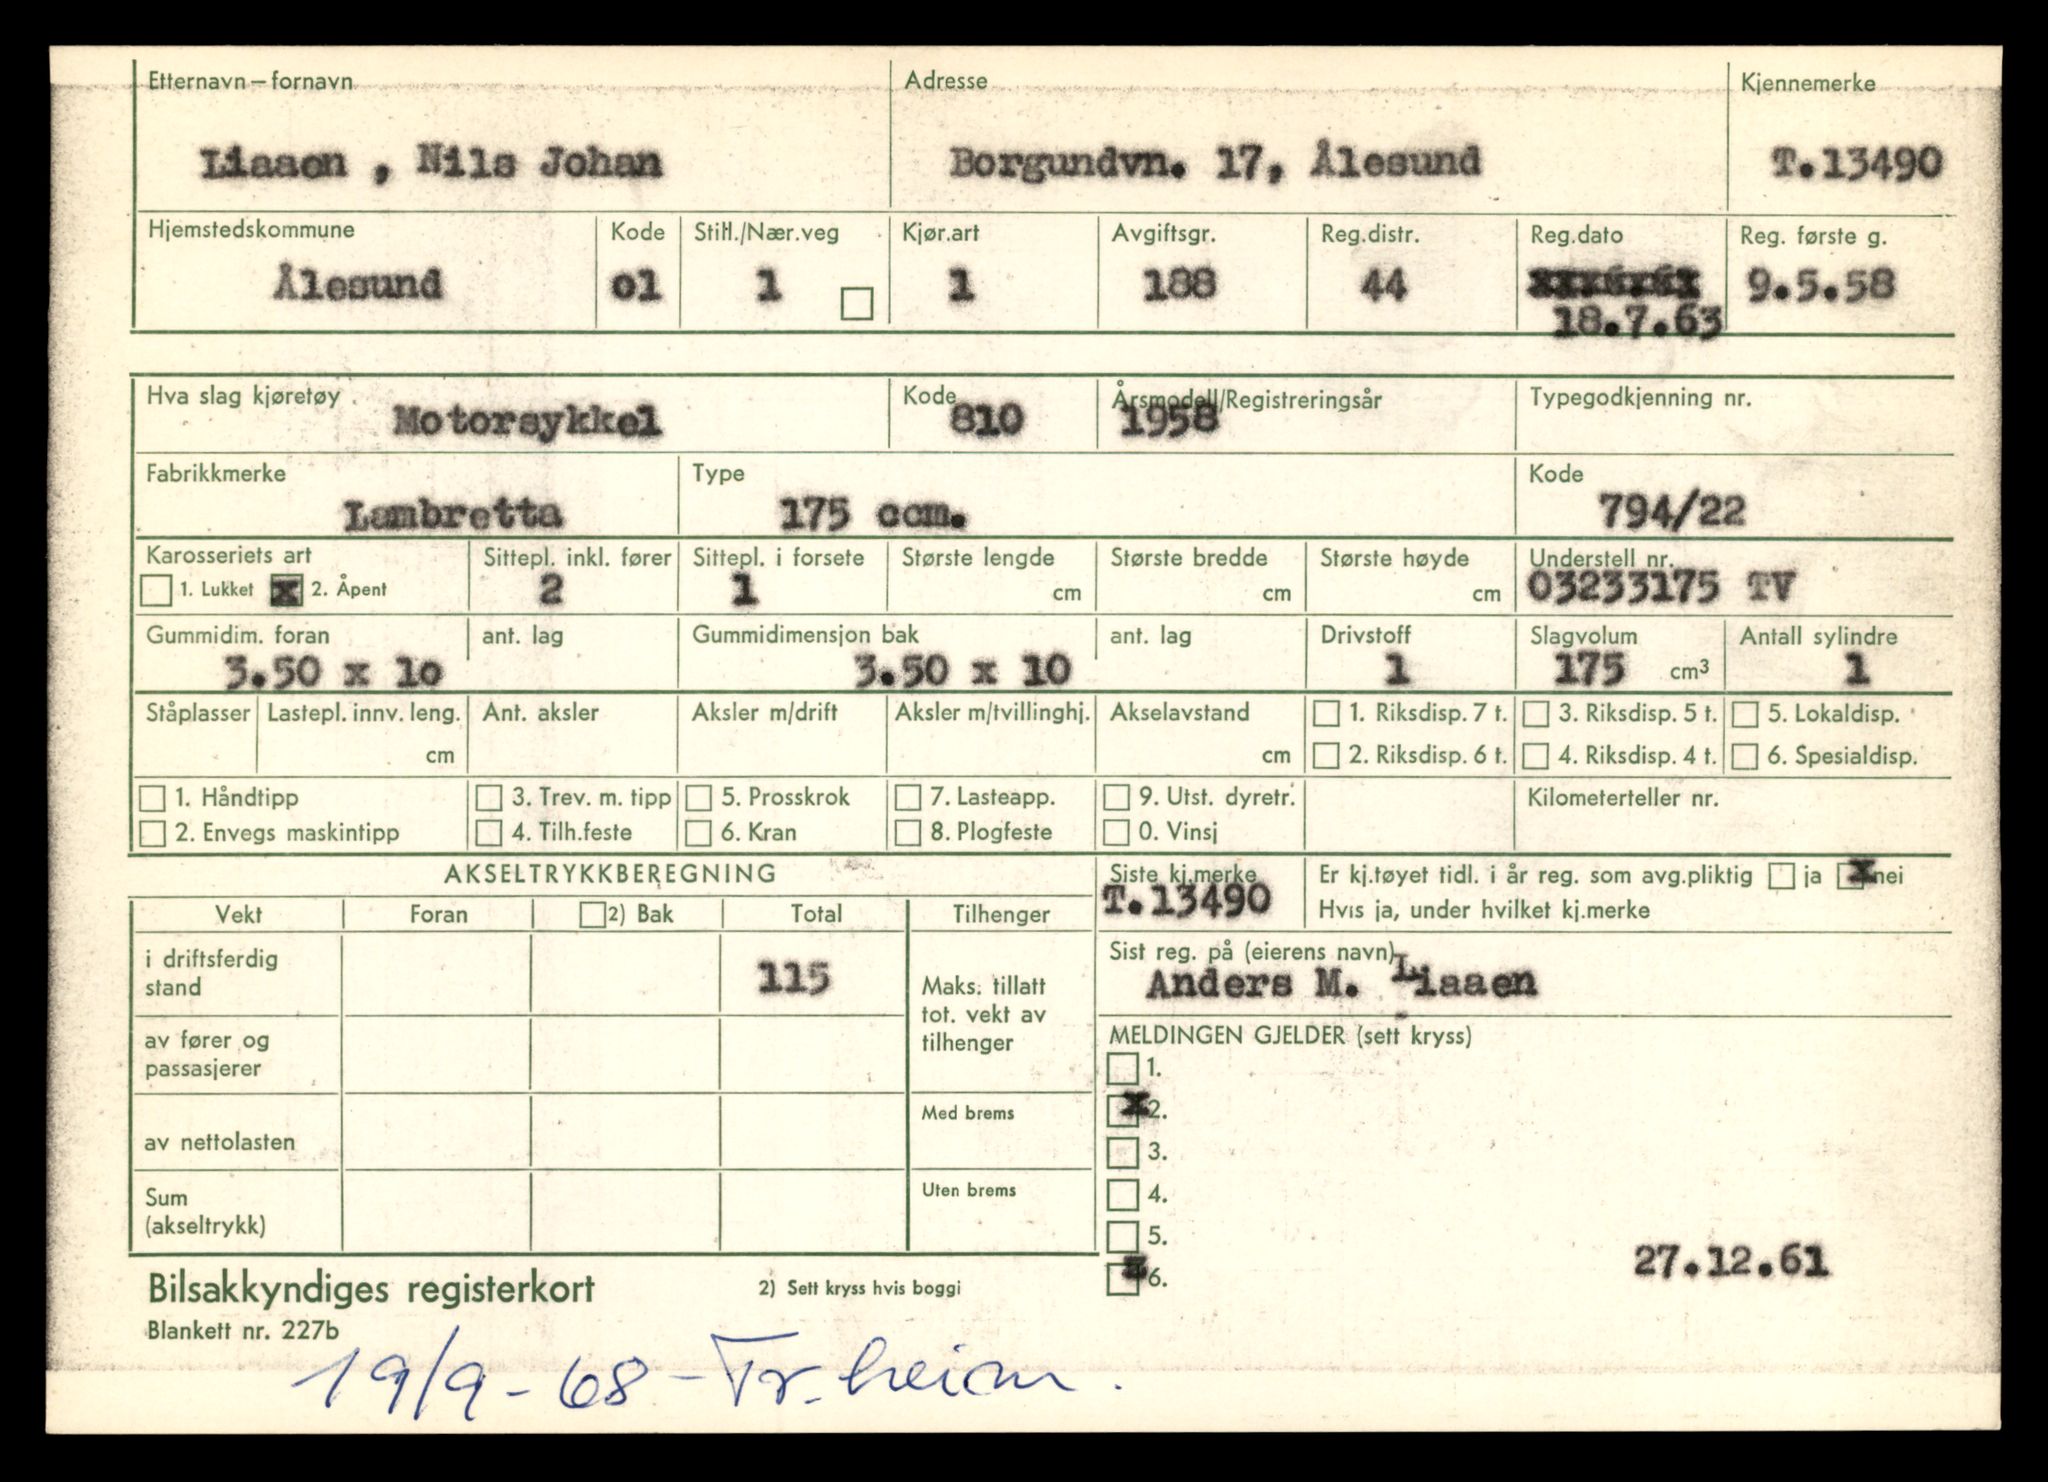 Etternavn – fornavn Adresse Kjennemerke
Liaaen , Nils Johan Borgundvn. 17, Ålesund T.13490
Hjemstedskommune Kode Still./Nær.veg Kjør.art Avgiftsgr. Reg.distr. Reg.dato Reg. første g.
Ålesund o1 1 1 188 44 9.5.58
18.7.63
Hva slag kjøretøy Kode Årsmodell/Registreringsår Typegodkjenning nr.
Motorsykkel 810 1958
Fabrikkmerke Type Kode
Lambretta 175 ccm. 794/22
Karosseriets art Sittepl. inkl. fører Sittepl. i forsete Største lengde Største bredde Største høyde Understell nr.
1. Lukket x 2. Åpent 2 1 cm cm cm 03233175 TV
Gummidim. foran ant. lag Gummidimensjon bak ant. lag Drivstoff Slagvolum Antall sylindre
3.50 x 1o 3.50 x 10 1 175 cm³ 1
Ståplasser Lastepl. innv. leng. Ant. aksler Aksler m/drift Aksler m/tvillinghj. Akselavstand 1. Riksdisp. 7 t. 3. Riksdisp. 5 t. 5. Lokaldisp.
cm cm 2. Riksdisp. 6 t. 4. Riksdisp. 4 t. 6. Spesialdisp.
1. Håndtipp 3. Trev. m. tipp 5. Prosskrok 7. Lasteapp. 9. Utst. dyretr. Kilometerteller nr.
2. Envegs maskintipp 4. Tilh.feste 6. Kran 8. Plogfeste 0. Vinsj
AKSELTRYKKBEREGNING Siste kj.merke Er kj.tøyet tidl. i år reg. som avg.pliktig ja x nei
T.13490 Hvis ja, under hvilket kj.merke
Vekt Foran 2) Bak Total Tilhenger
Sist reg. på (eierens navn)
Anders M. Liaaen
i driftsferdig
stand 115
Maks. tillatt
tot. vekt av
tilhenger
av fører og
passasjerer
Med brems
av nettolasten
Uten brems
Sum
(akseltrykk)
MELDINGEN GJELDER (sett kryss)
1.
x 2.
3.
4.
5.
x 6.
27.12.61
Bilsakkyndiges registerkort 2) Sett kryss hvis boggi
Blankett nr. 227b
19/9-68 - Tr.heim.